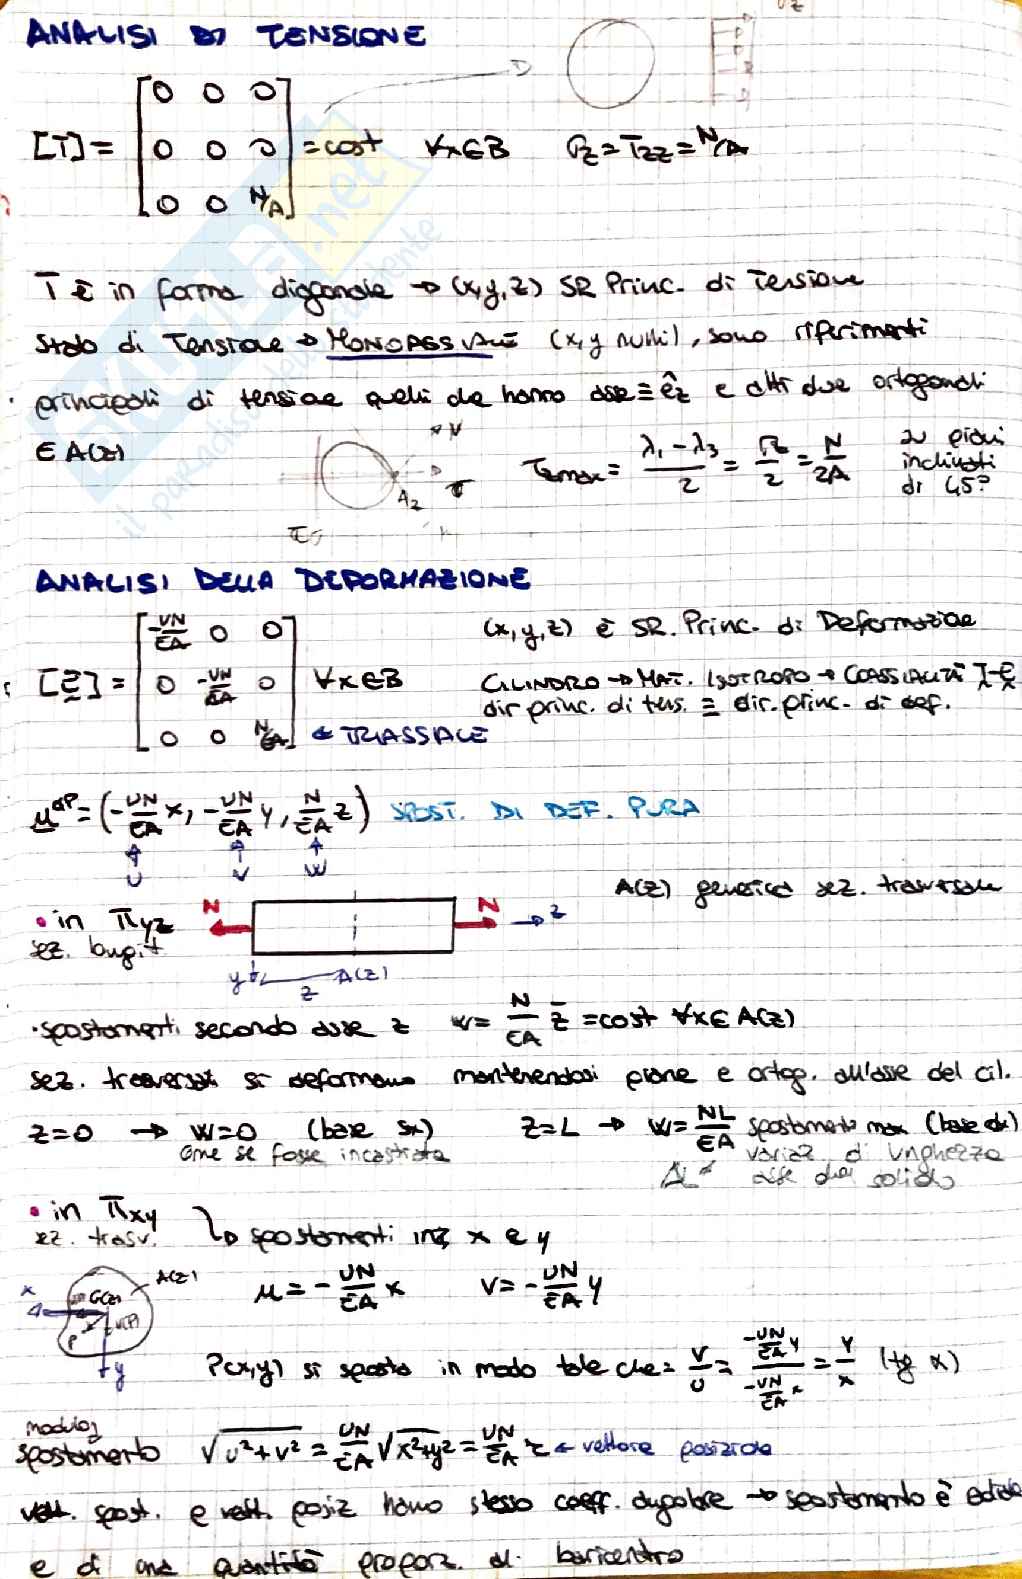 ANALISI DI TENSIONE
[T] = [0 0 0
0 0 0
0 0 N/A] = cost ∀x∈B σz = Tzz = N/A
T è in forma diagonale → (x,y,z) SR Princ. di Tensione
Stato di Tensione → MONOASSIALE (x,y nulli), sono riferimenti
principali di tensione quelli che hanno asse ≡ êz e altri due ortogonali
∈ A(z)
τmax = (λ1 - λ3)/2 = σz/2 = N/2A su piani inclinati di 45°
ANALISI DELLA DEFORMAZIONE
[E] = [-νN/EA 0 0
0 -νN/EA 0
0 0 N/EA] ∀x∈B ← TRIASSIALE
(x,y,z) è SR. Princ. di Deformazione
CILINDRO → MAT. ISOTROPO → COASSIALITÀ T-E
dir princ. di tens. ≡ dir. princ. di def.
u^dp = (-νN/EA x, -νN/EA y, N/EA z) SPOST. DI DEF. PURA
U V W
A(z) generica sez. trasversale
• in πyz
sez. longit
N N z
y z A(z)
• spostamenti secondo asse z w = N/EA z̄ = cost ∀x∈A(z)
sez. trasversali si deformano mantenendosi piane e ortog. all'asse del cil.
z=0 → w=0 (base sx) z=L → w = NL/EA spostamento max (base dx)
come se fosse incastrata variaz. di lunghezza
ΔL asse del solido
• in πxy
sez. trasv. ↳ spostamenti x e y
x G(z) A(z) P y
u = -νN/EA x v = -νN/EA y
P(x,y) si sposta in modo tale che = v/u = (-νN/EA y)/(-νN/EA x) = y/x (tg α)
modulo
spostamento √u²+v² = νN/EA √x²+y² = νN/EA r ← vettore posizione
vett. spost. e vett. posiz hanno stesso coeff. angolare → spostamento è radiale
e di una quantità proporz. al baricentro
il paradiso dello studente